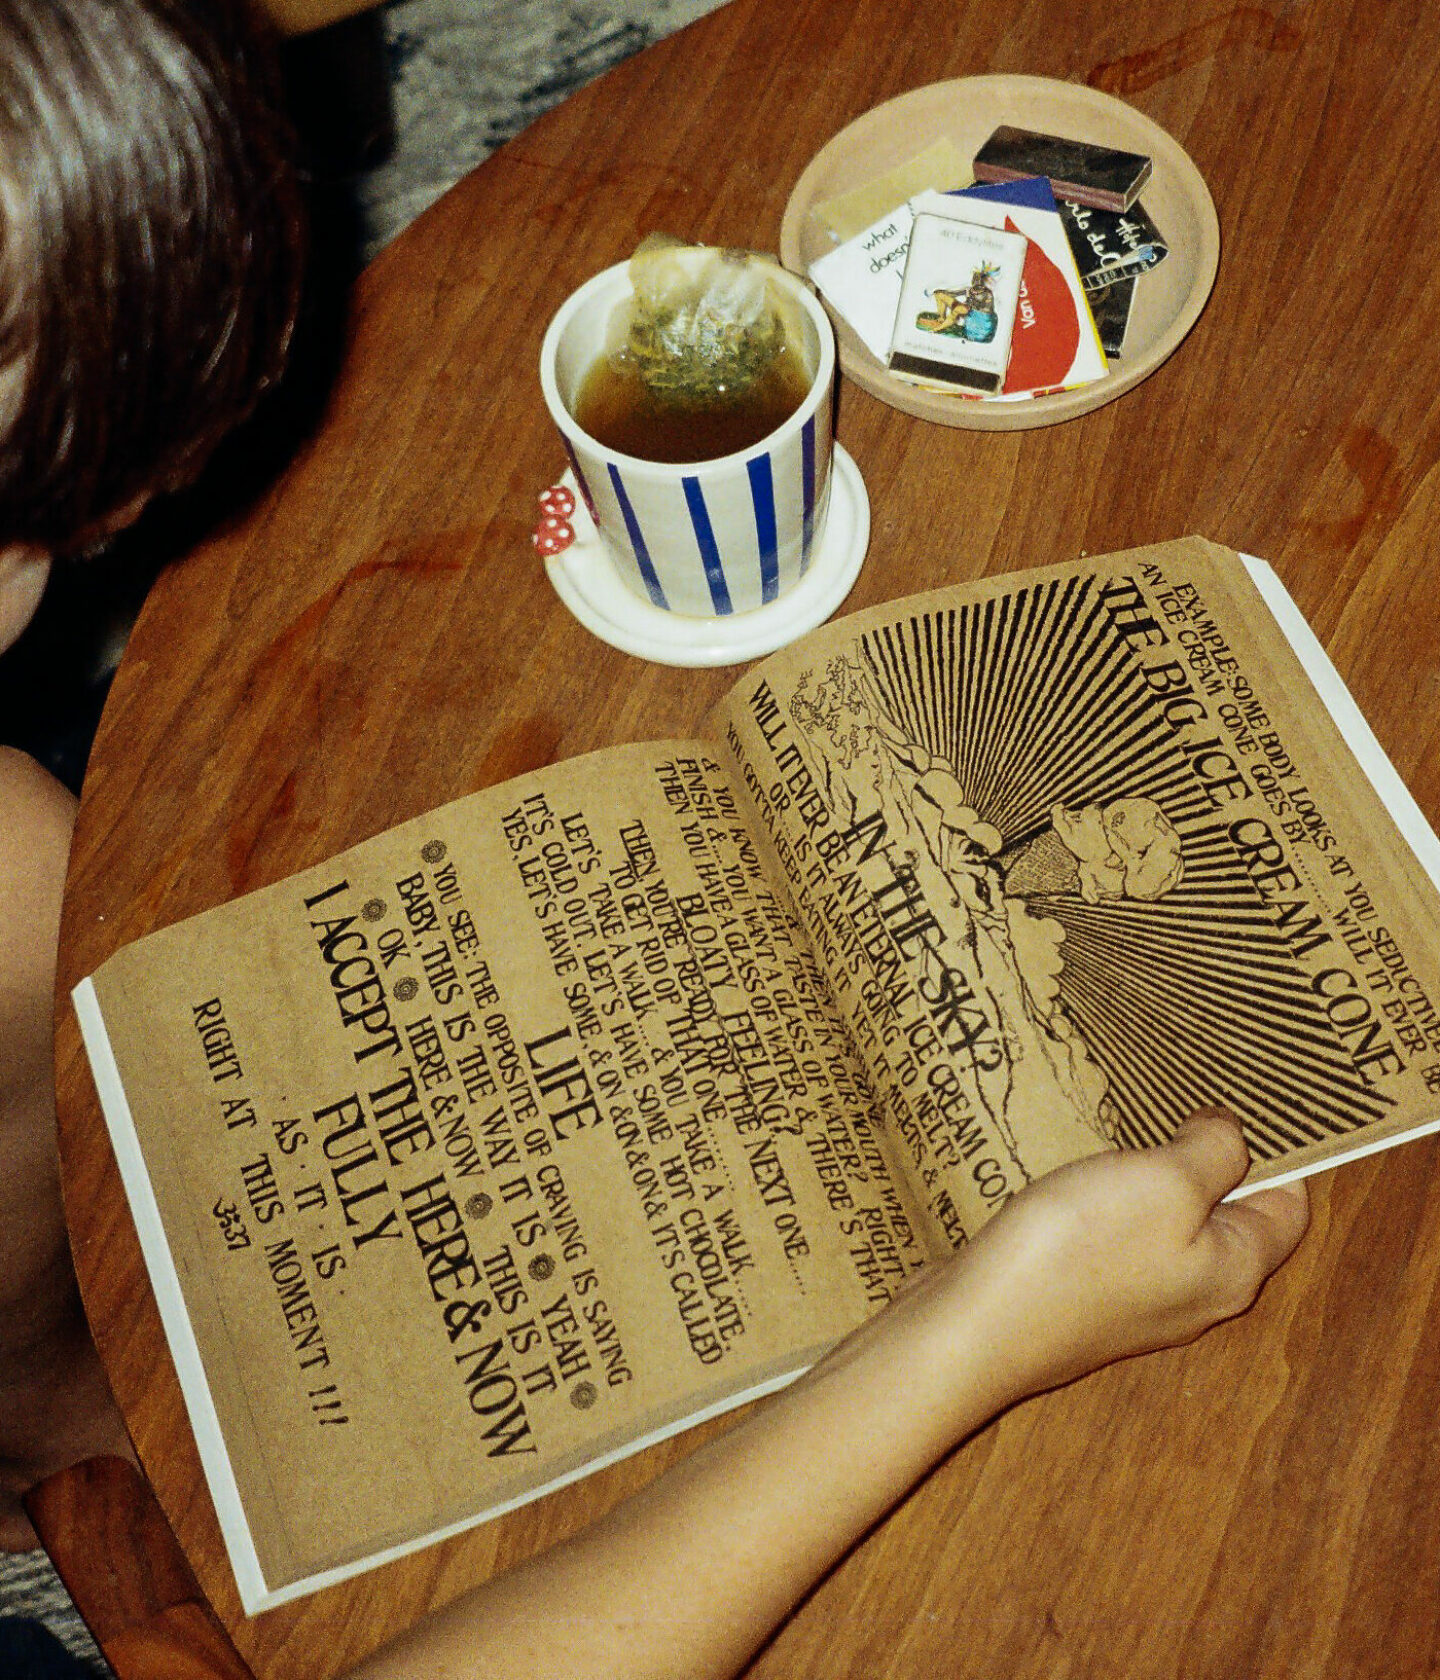 EXAMPLE:SOME BODY LOOKS AT YOU SEDUCTIVEL
AN ICE CREAM CONE GOES BY.......... WILL IT EVER BE
THE BIG ICE CREAM CONE
IN THE SKY?
WILL IT EVER BE AN ETERNAL ICE CREAM CON
OR...IS IT ALWAYS GOING TO MELT?
YOU GOTTA KEEP EATING IT, YET IT MELTS, & NEXT
& YOU KNOW THAT TASTE IN YOUR MOUTH WHEN Y
FINISH &...YOU WANT A GLASS OF WATER? RIGHT.
THEN YOU HAVE A GLASS OF WATER & THERE'S THAT
BLOATY FEELING?
THEN YOU'RE READY FOR THE NEXT ONE.....
TO GET RID OF THAT ONE........
LET'S TAKE A WALK.... & YOU TAKE A WALK.....
IT'S COLD OUT. LET'S HAVE SOME HOT CHOCOLATE.
YES, LET'S HAVE SOME, & ON &ON&ON& IT'S CALLED
LIFE
YOU SEE: THE OPPOSITE OF CRAVING IS SAYING
BABY, THIS IS THE WAY IT IS YEAH
OK HERE & NOW THIS IS IT
I ACCEPT THE HERE & NOW
FULLY
· AS · IT · IS ·
RIGHT AT THIS MOMENT !!!
ॐ37
what
doesn'
Van